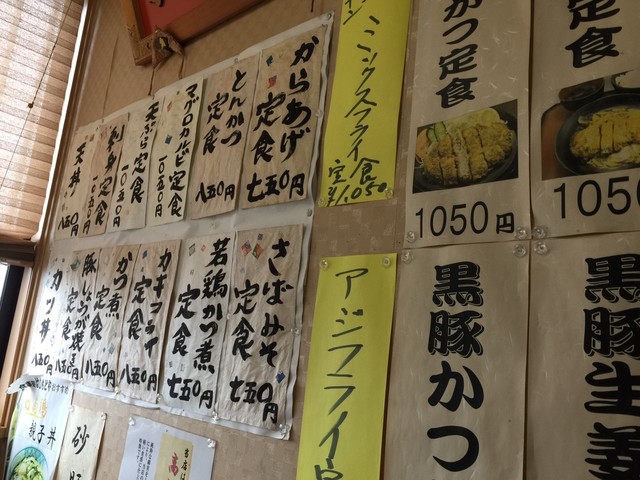 かつ定食
1050円
定食
1050
ミックスフライ
定食
¥1,050
からあげ
定食
七五〇円
とんかつ
定食
八五〇円
マグロカルビ定食
一〇五〇円
天ぷら定食
一〇五〇円
刺身定食
一〇五〇円
天丼
八五〇円
さばみそ
定食
七五〇円
若鶏かつ煮
定食
七五〇円
カキフライ
定食
八五〇円
かつ煮
定食
八五〇円
豚しょうが焼き
定食
八五〇円
カツ丼
八五〇円
アジフライ
黒豚かつ
黒豚生姜
親子丼
砂肝
当店は